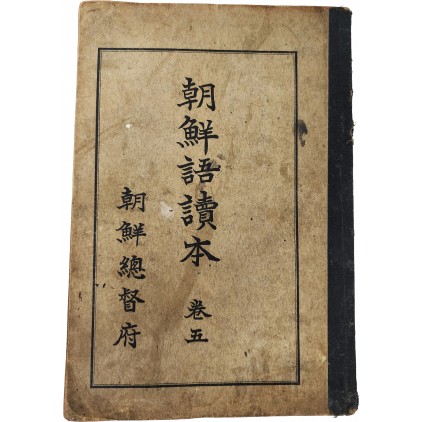 朝鮮語讀本
卷五
朝鮮總督府